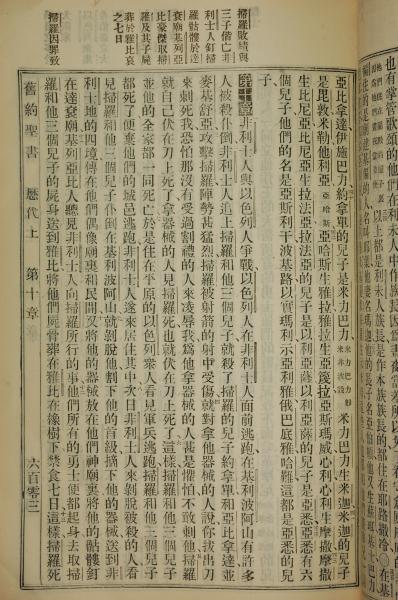 亞比拿達伊施巴力約拿單的兒子是米巴力米力巴力生米迦米迦的兒子
是毘敦米勒他利亞亞哈斯亞哈斯生雅拉雅拉生亞篾拉亞斯瑪威心利心利生摩撒摩撒
生比尼亞比尼亞生拉法亞拉法亞的兒子是以利亞薩以利亞薩的兒子是亞悉亞悉有六
個兒子他們的名是亞斯利干波基路以實瑪利示亞利雅俄巴底雅哈難這都是亞悉的兒
子
非利士人與以色列人爭戰以色列人在非利士人面前逃跑在基利波阿山有許多
人被殺仆倒非利士人追上掃羅和他三個兒子就殺了掃羅的兒子約拿單和亞比拿達並
麥基舒亞攻擊掃羅陣勢甚猛烈掃羅被射箭的射中受傷就對拿他器械的人說你拔出刀
來刺死我恐怕那沒有受過割禮的人來凌辱我爲他拿器械的人甚是懼怕不敢刺他掃羅
就自己伏在刀上死了拿器械的人見掃羅死也就伏在刀上死了這樣掃羅和他三個兒子
並他的全家都一同死亡於是住在平原的以色列衆人看見軍兵逃跑掃羅和他三個兒子
都死了便棄他們的城邑逃跑非利士人遂來居住其中次日非利士人來剝脫被殺的人看
見掃羅和他三個兒子仆倒在基利波阿山就剝脫他割下他的首級摘下他的器械送到非
利士地的四境傳在他們偶像廟裏和民間又將他的器械放在他們神廟裏將他的骷髏釘
在達袞廟基列亞比人聽見非利士人向掃羅所行的事他們所有的勇士便都起身去取掃
羅和他三個兒子的屍身送到雅比將他們屍骨葬在雅比在橡樹下禁食七日這樣掃羅
掃羅敗績與
三子偕亡非
利士人釘掃
羅骷髏於達
袞廟基列亞
比豪傑取掃
羅及其子屍
葬於雅比哀
之七日
掃羅因罪致
舊約聖書 歷代上 第十章 六百零三